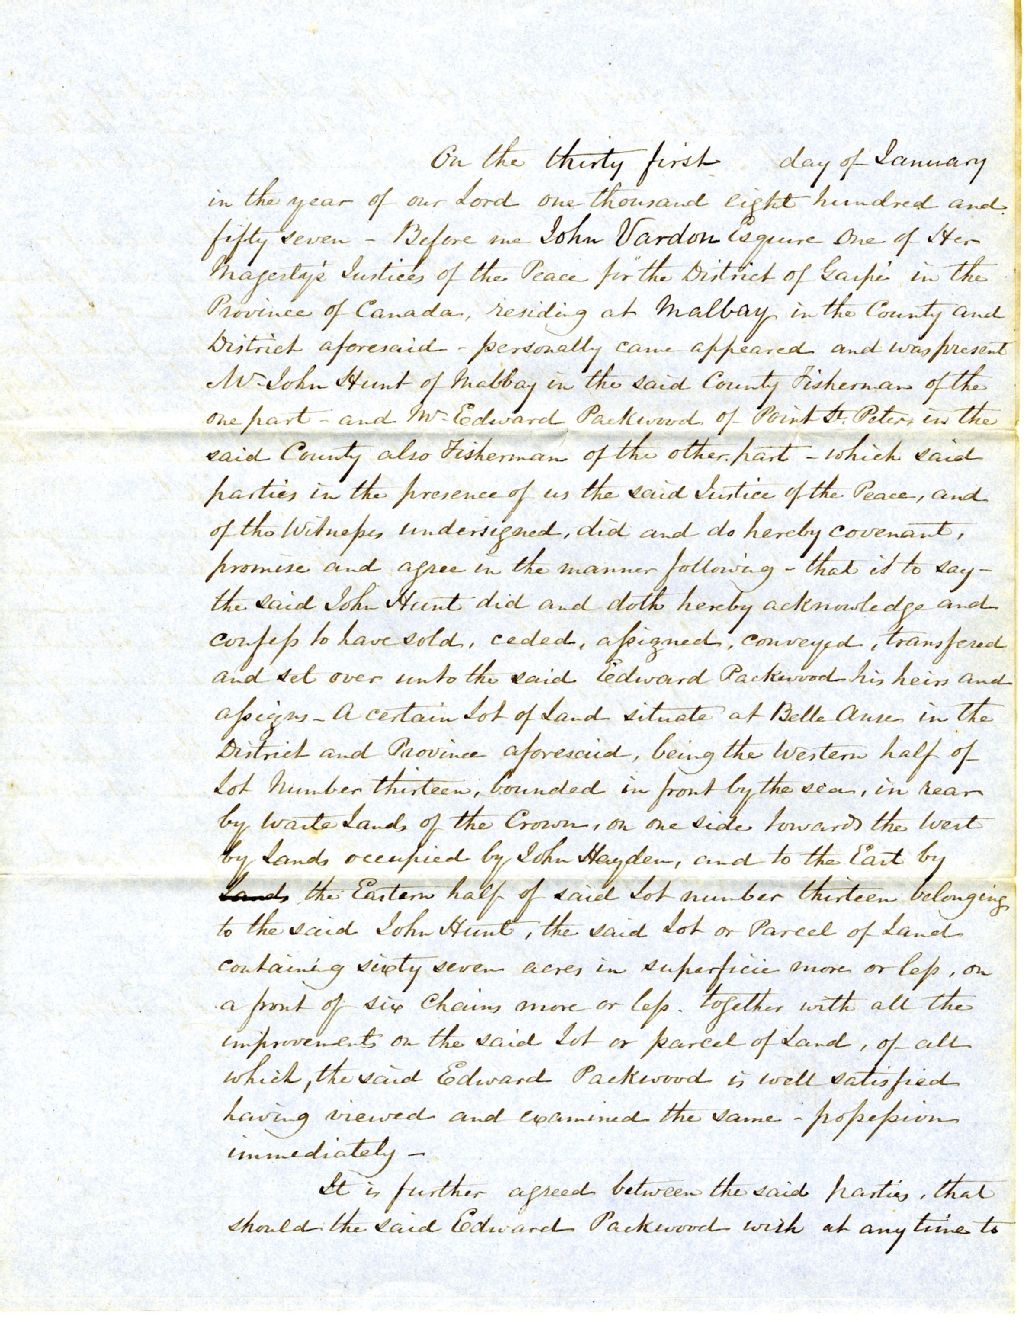 On the thirty first day of January
in the year of our Lord one thousand eight hundred and
fifty seven - Before me John Vardon Esquire One of Her
Magesty's Justices of the Peace for the District of Gaspé in the
Province of Canada, residing at Malbay in the County and
District aforesaid - personally came appeared and was present
Mr John Hunt of Malbay in the said County Fisherman of the
one part - and Mr Edward Packwood of Point St. Peters in the
said County also Fisherman of the other part - which said
parties in the presence of us the said Justice of the Peace, and
of the Witnesses undersigned, did and do hereby covenant,
promise and agree in the manner following - that is to say -
the said John Hunt did and doth hereby acknowledge and
confess to have sold, ceded, assigned, conveyed, transfered
and set over unto the said Edward Packwood his heirs and
assigns - A certain Lot of Land situate at Belle Anse in the
District and Province aforesaid, being the Western half of
Lot Number thirteen, bounded in front by the sea, in rear
by Waste Lands of the Crown, on one side towards the West
by Lands occupied by John Hayden, and to the East by
Lands the Eastern half of said Lot number thirteen belonging
to the said John Hunt, the said Lot or Parcel of Land
containing sixty seven acres in superficie more or less, on
a front of six Chains more or less. together with all the
improvements on the said Lot or parcel of Land, of all
which, the said Edward Packwood is well satisfied
having viewed and examined the same - possession
immediately -
It is further agreed between the said parties, that
should the said Edward Packwood wish at any time to